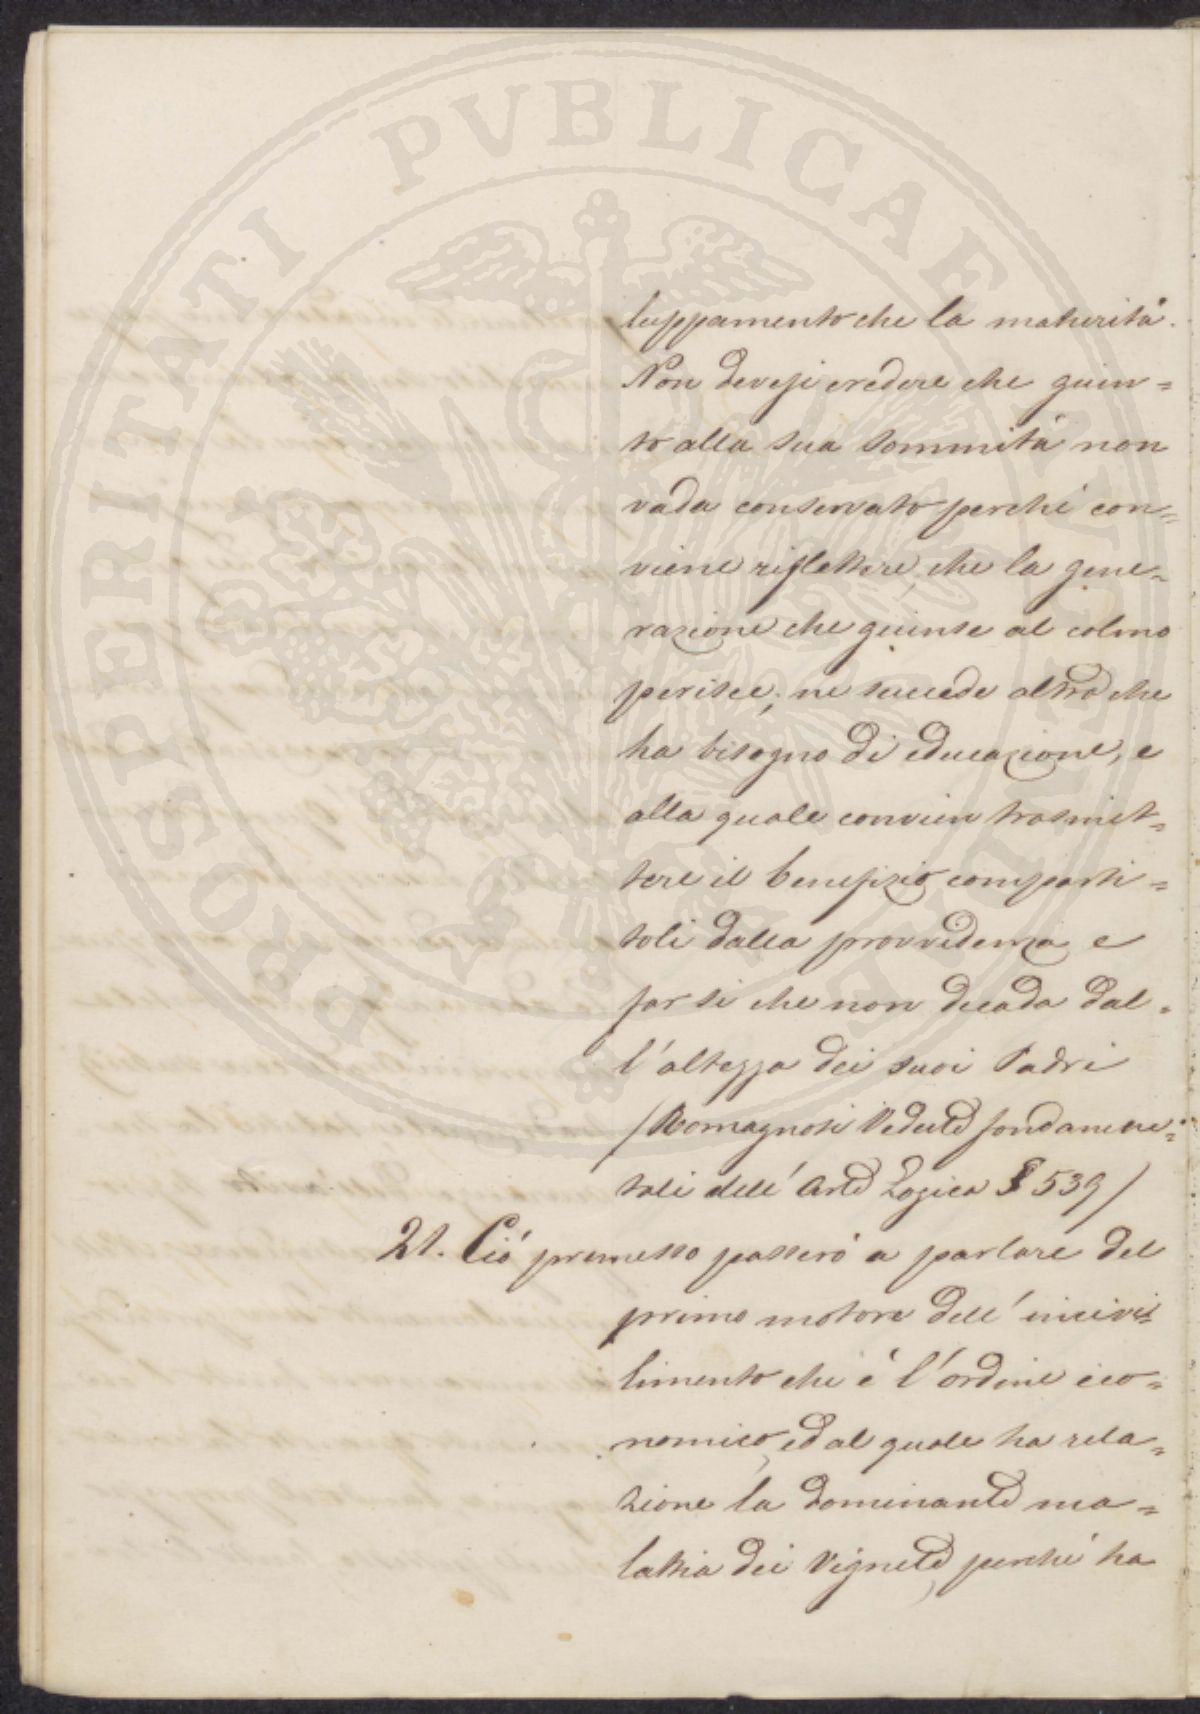 luppamento che la maturità.
Non devesi credere che giun=
to alla sua sommità non
vada conservato perché con=
viene riflettere, che la gene=
razione che giunse al colmo
perisce; ne succede altra che
ha bisogno di educazione, e
alla quale convien trasmet=
tere il benefizio comparti=
toli dalla provvidenza e
far si che non decada dal=
l'altezza dei suoi Padri
/Romagnosi Vedute fondamen=
tali dell'Arte Logica § 539/
21. Ció premesso passeró a parlare del
primo motore dell'incivi=
limento che é l'ordine eco=
nomico, ed al quale ha rela=
zione la dominante ma=
lattia dei Vigneti, perché ha
PROSPERITATI PVBLICAE